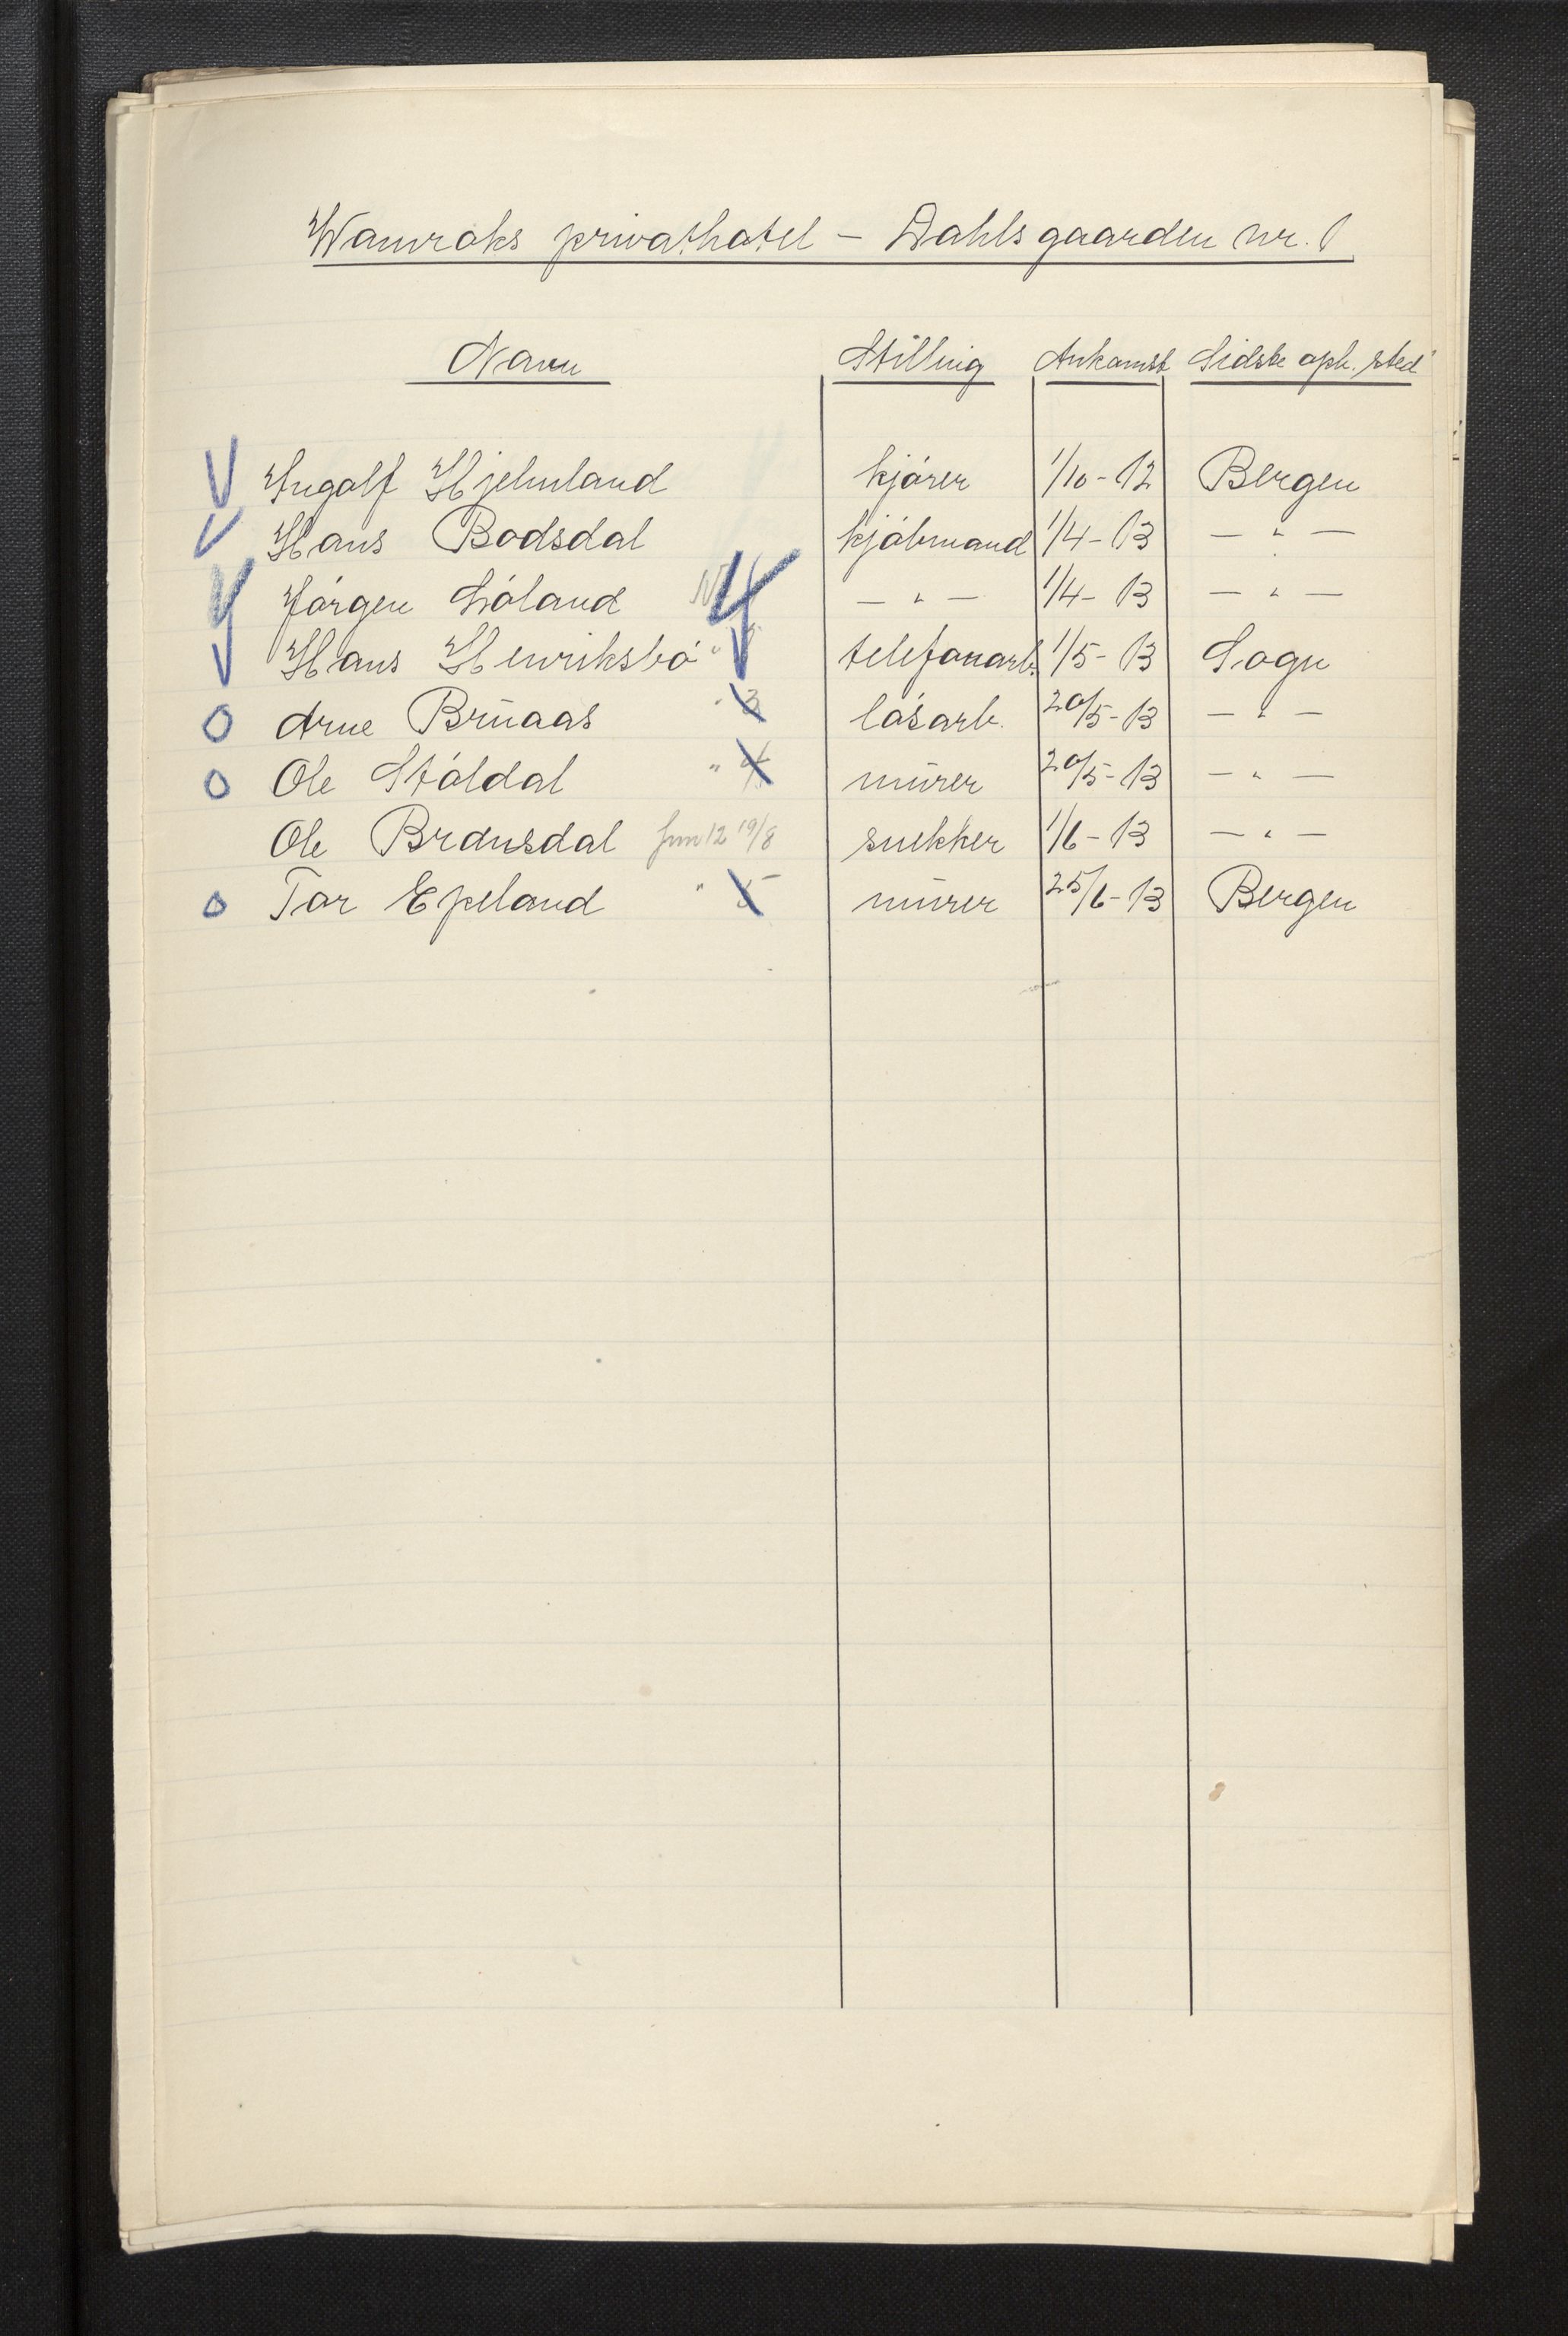 Wamraks privathotel – Dahlsgaarden nr. 1
Navn Stilling Ankomst Sidste oph. sted
Ingolf Hjelmland kjører 1/10-12 Bergen
Hans Bodsdal kjøbmand 1/4-13 — " —
Jørgen Løland — " — 1/4-13 — " —
Hans Henriksbø " telefonarb. 1/5-13 Sogn
Arne Brūaas " 3 løsarb. 20/5-13 — " —
Ole Støldal " 4 mūrer 20/5-13 — " —
Ole Brandsdal 19/8 snekker 1/6-13 — " —
Tor Epeland " 5 mūrer 25/6-13 Bergen